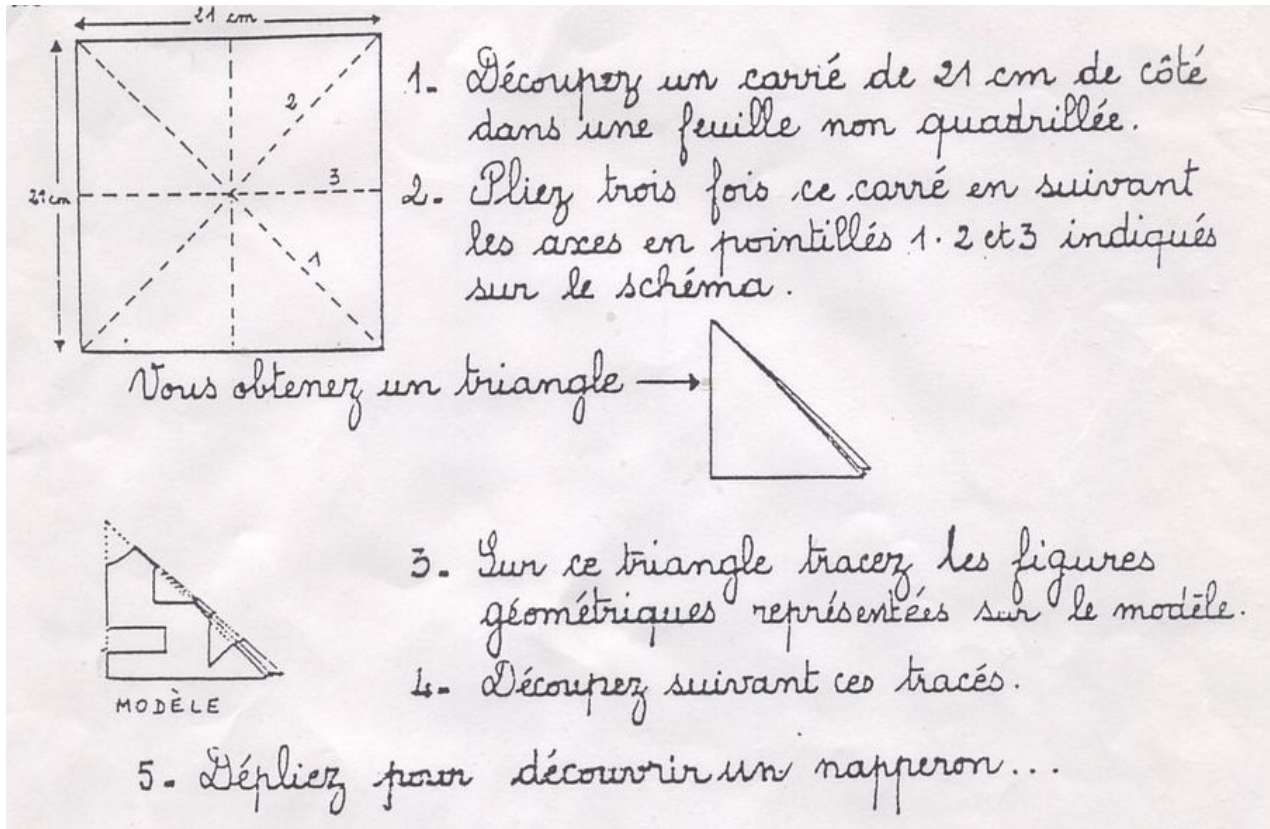 21 cm
2
3
21 cm
1
1. Découpez un carré de 21 cm de côté
dans une feuille non quadrillée.
2. Pliez trois fois ce carré en suivant
les axes en pointillés 1. 2 et 3 indiqués
sur le schéma.
Vous obtenez un triangle
3. Sur ce triangle tracez les figures
géométriques représentées sur le modèle.
4. Découpez suivant ces tracés.
MODÈLE
5. Dépliez pour découvrir un napperon...